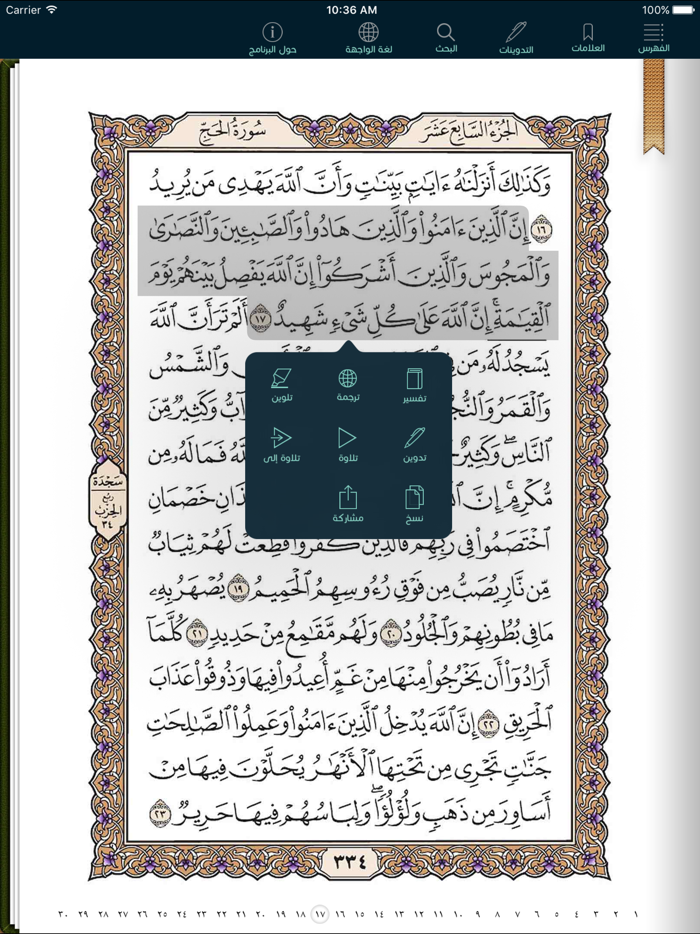 Carrier 10:36 AM 100%
الفهرس العلامات التدوينات البحث لغة الواجهة حول البرنامج
الجزء السابع عشر سورة الحج
وَكَذَٰلِكَ أَنزَلْنَٰهُ ءَايَٰتٍۭ بَيِّنَٰتٍ وَأَنَّ ٱللَّهَ يَهْدِى مَن يُرِيدُ
١٦ إِنَّ ٱلَّذِينَ ءَامَنُوا۟ وَٱلَّذِينَ هَادُوا۟ وَٱلصَّٰبِـِٔينَ وَٱلنَّصَٰرَىٰ
وَٱلْمَجُوسَ وَٱلَّذِينَ أَشْرَكُوٓا۟ إِنَّ ٱللَّهَ يَفْصِلُ بَيْنَهُمْ يَوْمَ
ٱلْقِيَٰمَةِ ۚ إِنَّ ٱللَّهَ عَلَىٰ كُلِّ شَىْءٍ شَهِيدٌ ١٧ أَلَمْ تَرَ أَنَّ ٱللَّهَ
يَسْجُدُ لَهُۥ مَن وَٱلشَّمْسُ
وَٱلْقَمَرُ وَكَثِيرٌ مِّنَ
ٱلنَّاسِ ۖ وَكَثِيرٌ فَمَا لَهُۥ مِن
مُّكْرِمٍ ۚ إِنَّ خَصْمَانِ
ٱخْتَصَمُوا۟ فِى رَبِّهِمْ ۖ فَٱلَّذِينَ كَفَرُوا۟ قُطِّعَتْ لَهُمْ ثِيَابٌ
مِّن نَّارٍ يُصَبُّ مِن فَوْقِ رُءُوسِهِمُ ٱلْحَمِيمُ ١٩ يُصْهَرُ بِهِۦ
مَا فِى بُطُونِهِمْ وَٱلْجُلُودُ ٢٠ وَلَهُم مَّقَٰمِعُ مِنْ حَدِيدٍ ٢١ كُلَّمَآ
أَرَادُوٓا۟ أَن يَخْرُجُوا۟ مِنْهَا مِنْ غَمٍّ أُعِيدُوا۟ فِيهَا وَذُوقُوا۟ عَذَابَ
ٱلْحَرِيقِ ٢٢ إِنَّ ٱللَّهَ يُدْخِلُ ٱلَّذِينَ ءَامَنُوا۟ وَعَمِلُوا۟ ٱلصَّٰلِحَٰتِ
جَنَّٰتٍ تَجْرِى مِن تَحْتِهَا ٱلْأَنْهَٰرُ يُحَلَّوْنَ فِيهَا مِنْ
أَسَاوِرَ مِن ذَهَبٍ وَلُؤْلُؤًا ۖ وَلِبَاسُهُمْ فِيهَا حَرِيرٌ ٢٣
تفسير ترجمة تلوين
تدوين تلاوة تلاوة إلى
نسخ مشاركة
سَجْدَة
ربع
الحزب
٣٤
٣٣٤
١ ٢ ٣ ٤ ٥ ٦ ٧ ٨ ٩ ١٠ ١١ ١٢ ١٣ ١٤ ١٥ ١٦ ١٧ ١٨ ١٩ ٢٠ ٢١ ٢٢ ٢٣ ٢٤ ٢٥ ٢٦ ٢٧ ٢٨ ٢٩ ٣٠